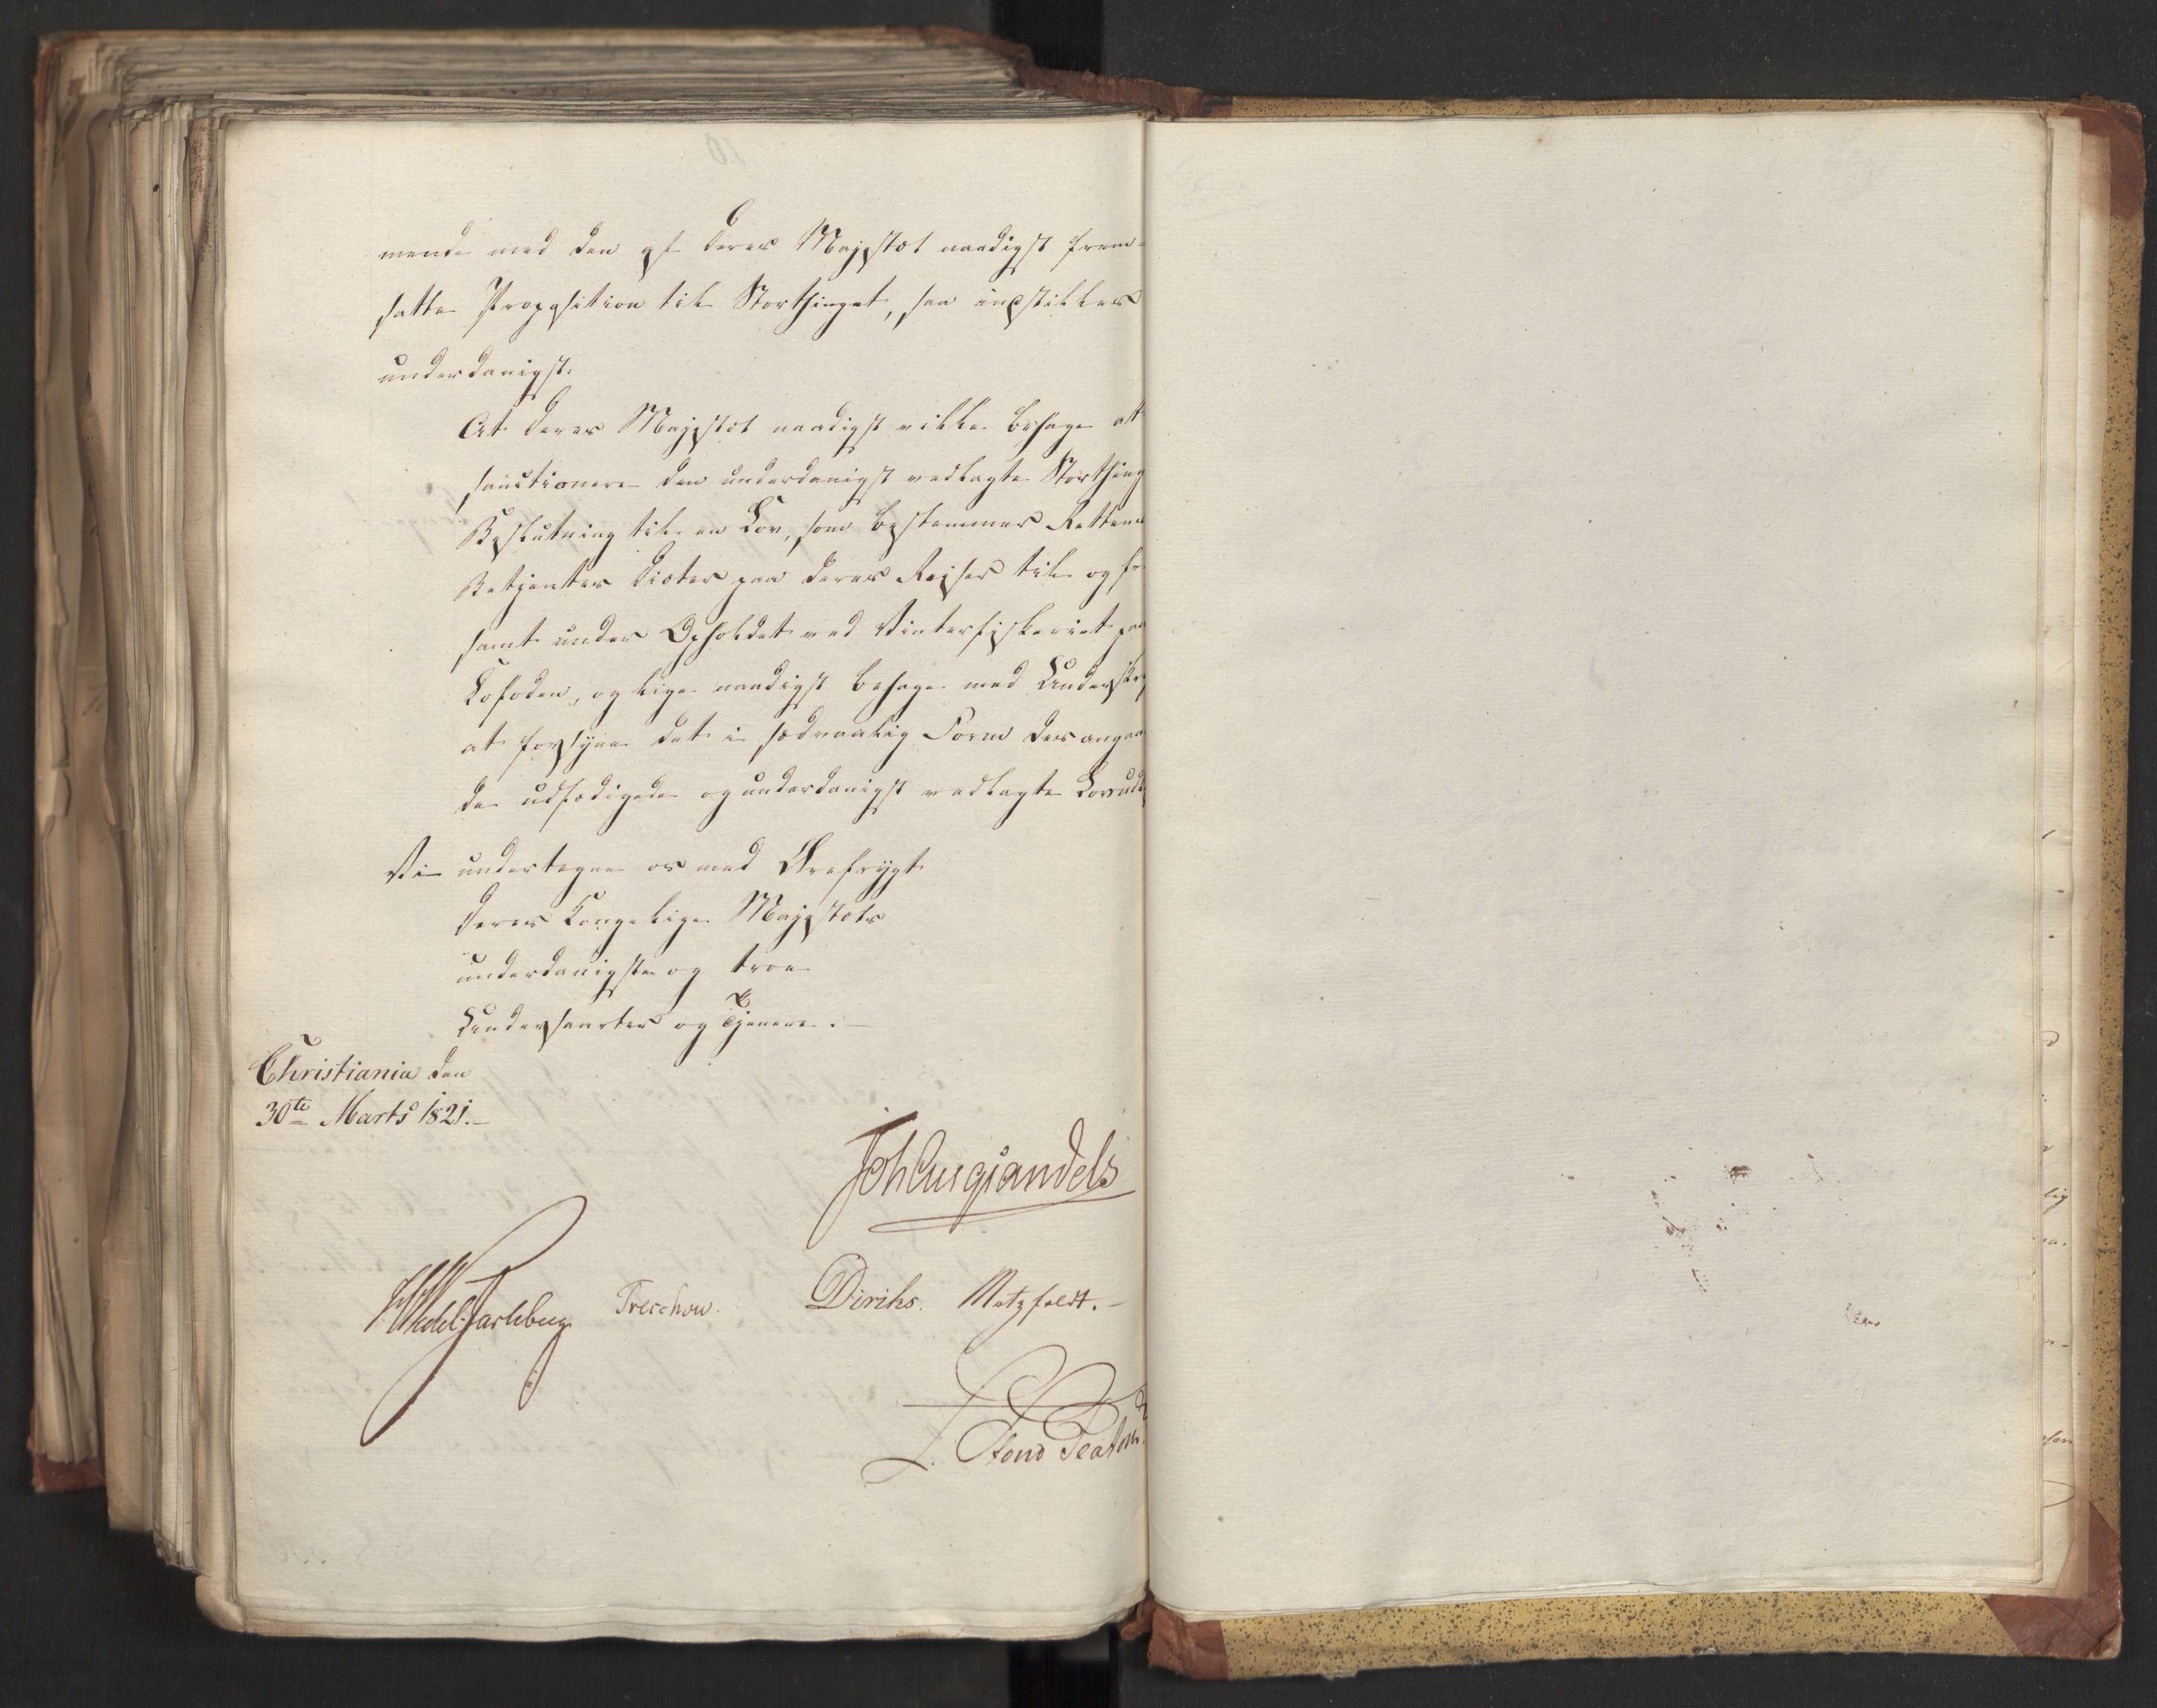 mende med den af Deres Majestæt naadigst frem-
satte Proposition til Storthinget, saa indstilles
underdanigst:
At Deres Majestæt naadigst ville behage at
sanctionere den underdanigst vedlagte Storthing
Beslutning til en Lov, som bestemmer Rettens
Betjentes Diæter paa deres Reiser til og fra
samt under Opholdet ved Vinterfiskeriet paa
Lofoden, og lige naadigst behage med Underskr
at forsyne det i sædvanlig Form des angaa
de udfærdigede og underdanigst vedlagte Lovud
Vi undertegne os med Ærefrygt
Deres Kongelige Majestæts
underdanigste og troe
Undersaatter og Tjenere.
Christiania den
30te Marts 1821.
Joh Aug Sandels
HWedel Jarlsberg Treschow. Diriks. Motzfeldt.